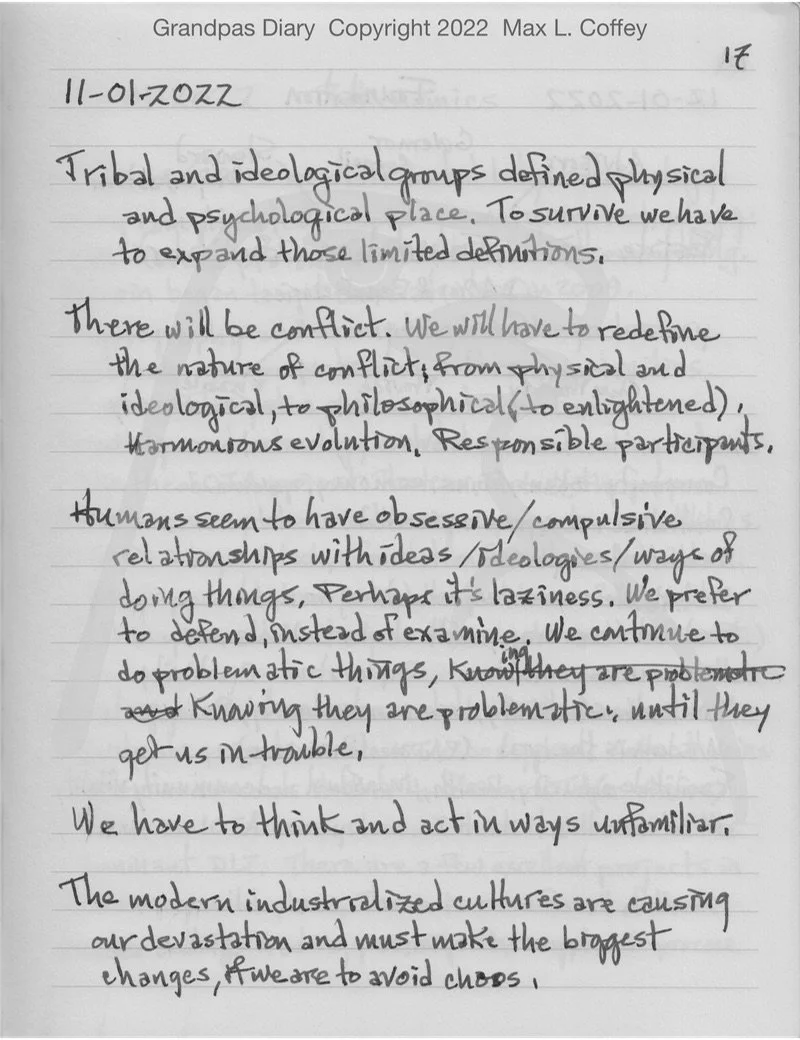 Grandpas Diary Copyright 2022 Max L. Coffey
17
11-01-2022
Tribal and ideological groups defined physical
and psychological place. To survive we have
to expand those limited definitions.
There will be conflict. We will have to redefine
the nature of conflict; from physical and
ideological, to philosophical (to enlightened).
Harmonious evolution. Responsible participants.
Humans seem to have obsessive/compulsive
relationships with ideas/ideologies/ways of
doing things. Perhaps it's laziness. We prefer
to defend, instead of examine. We continue to
do problematic things, Knowing they are problematic
and Knowing they are problematic; until they
get us in trouble.
We have to think and act in ways unfamiliar.
The modern industrialized cultures are causing
our devastation and must make the biggest
changes, if we are to avoid chaos.